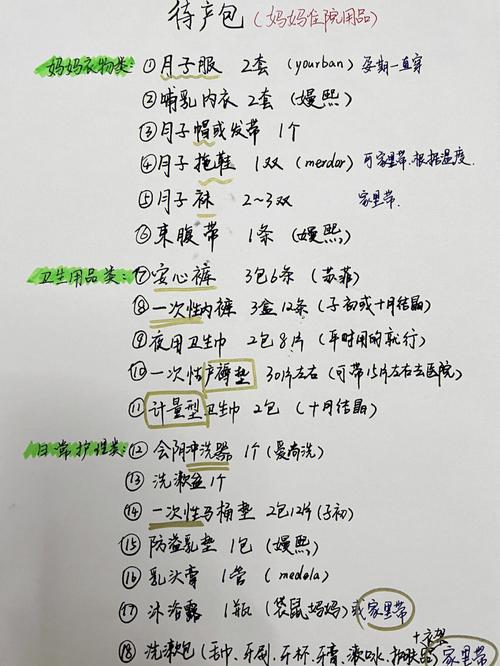 待产包(妈妈住院用品)
妈妈衣物类:①月子服 2套 (yourban) 孕期一直穿
②哺乳内衣 2套 (嫚熙)
③月子帽或发带 1个
④月子拖鞋 1双 (merdor) 可家里带.根据温度.
⑤月子袜 2~3双 家里带.
⑥束腹带 1条 (嫚熙)
卫生用品类:⑦安心裤 3包6条 (苏菲)
⑧一次性内裤 3盒12条 (子初或十月结晶)
⑨夜用卫生巾 2包8片 (平时用的就行)
⑩一次性产褥垫 30片左右 (可带15片左右去医院)
⑪计量型卫生巾 2包 (十月结晶)
日常护理类:⑫会阴冲洗器 1个(曼尚洗)
⑬洗漱盆1个
⑭一次性马桶垫 2包12片(子初)
⑮防溢乳垫 1包 (嫚熙)
⑯乳头膏 1管 (medela)
⑰沐浴露 1瓶 (袋鼠妈妈)或家里带
⑱洗漱包(毛巾、牙刷、牙杯、牙膏、漱口水、 家里带